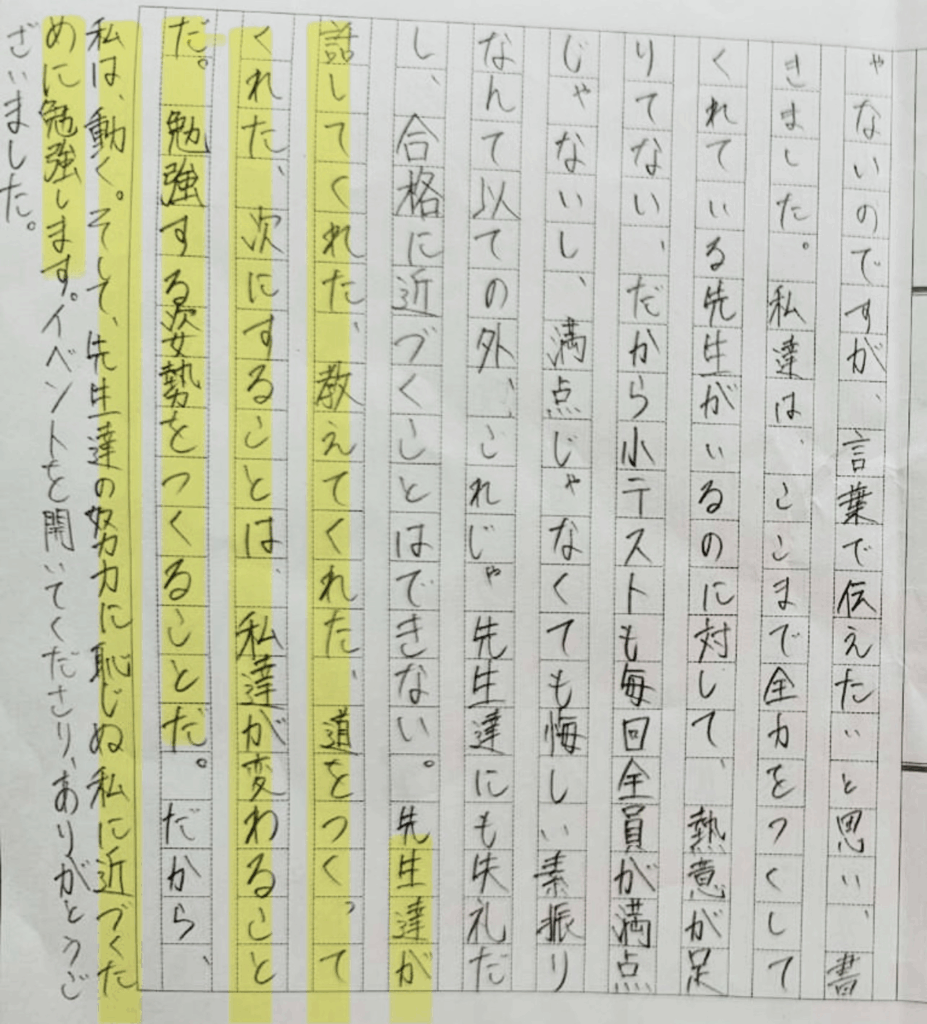 ゃないのですが、言葉で伝えたいと思い、書
きました。私達は、ここまで全力をつくして
くれている先生がいるのに対して、熱意が足
りてない、だから小テストも毎回全員が満点
じゃないし、満点じゃなくても悔しい素振り
なんて以ての外、これじゃ先生達にも失礼だ
し、合格に近づくことはできない。先生達が
話してくれた、教えてくれた、道をつくって
くれた、次にすることは、私達が変わること
だ。勉強する姿勢をつくることだ。だから、
私は、動く。そして、先生達の努力に恥じぬ私に近づくた
めに勉強します。イベントを開いてくださり、ありがとうご
ざいました。